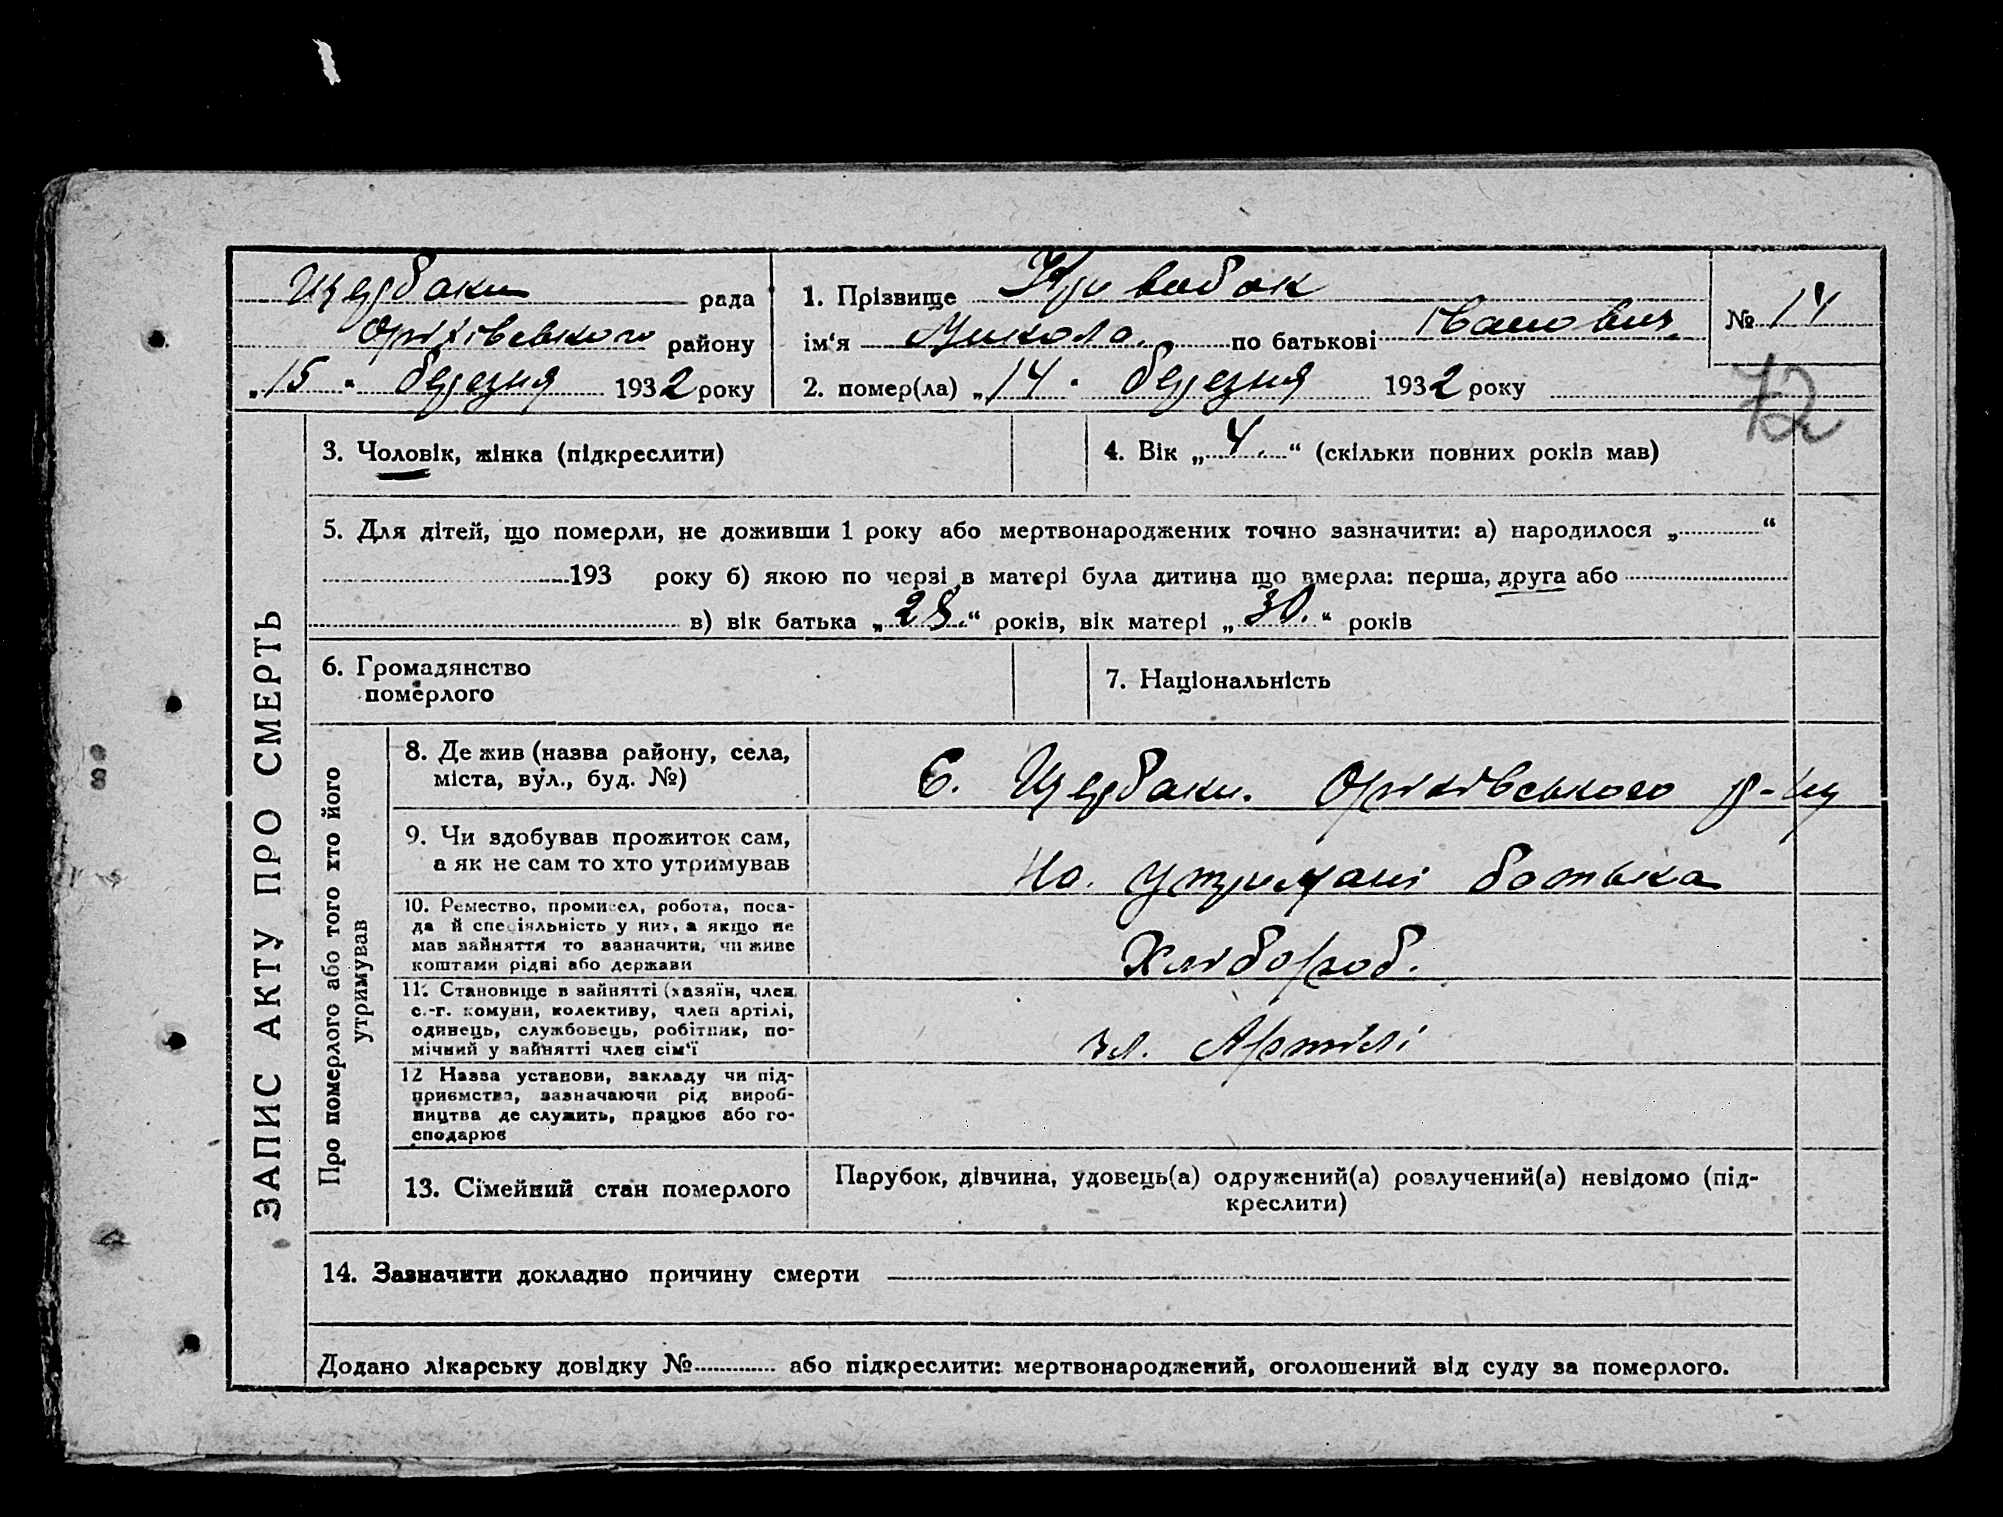 Щербаки рада
Оріхівського району
„15" березня 1932 року
1. Прізвище Кривобок
ім'я Микола по батькові Іванович
2. помер(ла) „14" березня 1932 року
№ 14
72
3. Чоловік, жінка (підкреслити)
4. Вік „4." (скільки повних років мав)
5. Для дітей, що померли, не доживши 1 року або мертвонароджених точно зазначити: а) народилося „ "
193 року б) якою по черзі в матері була дитина що вмерла: перша, друга або
в) вік батька „28." років, вік матері „30." років
6. Громадянство
померлого
7. Національність
ЗАПИС АКТУ ПРО СМЕРТЬ
Про померлого або того хто його
утримував
8. Де жив (назва району, села,
міста, вул., буд. №)
С. Щербаки. Оріхівського р-ну
9. Чи здобував прожиток сам,
а як не сам то хто утримував
На утримані батька
10. Ремество, промисел, робота, поса-
да й спеціяльність у них, а якщо не
мав зайняття то зазначити, чи живе
коштами рідні або держави
Хлібороб.
11. Становище в зайнятті (хазяїн, член
с.-г. комуни, колективу, член артілі,
одинець, службовець, робітник, по-
мічний у зайнятті член сім'ї
чл. Артілі
12 Назва установи, закладу чи під-
приємства, зазначаючи рід вироб-
ництва де служить, працює або го-
сподарює
13. Сімейний стан померлого
Парубок, дівчина, удовець(а) одружений(а) розлучений(а) невідомо (під-
креслити)
14. Зазначити докладно причину смерти
Додано лікарську довідку № або підкреслити: мертвонароджений, оголошений від суду за померлого.